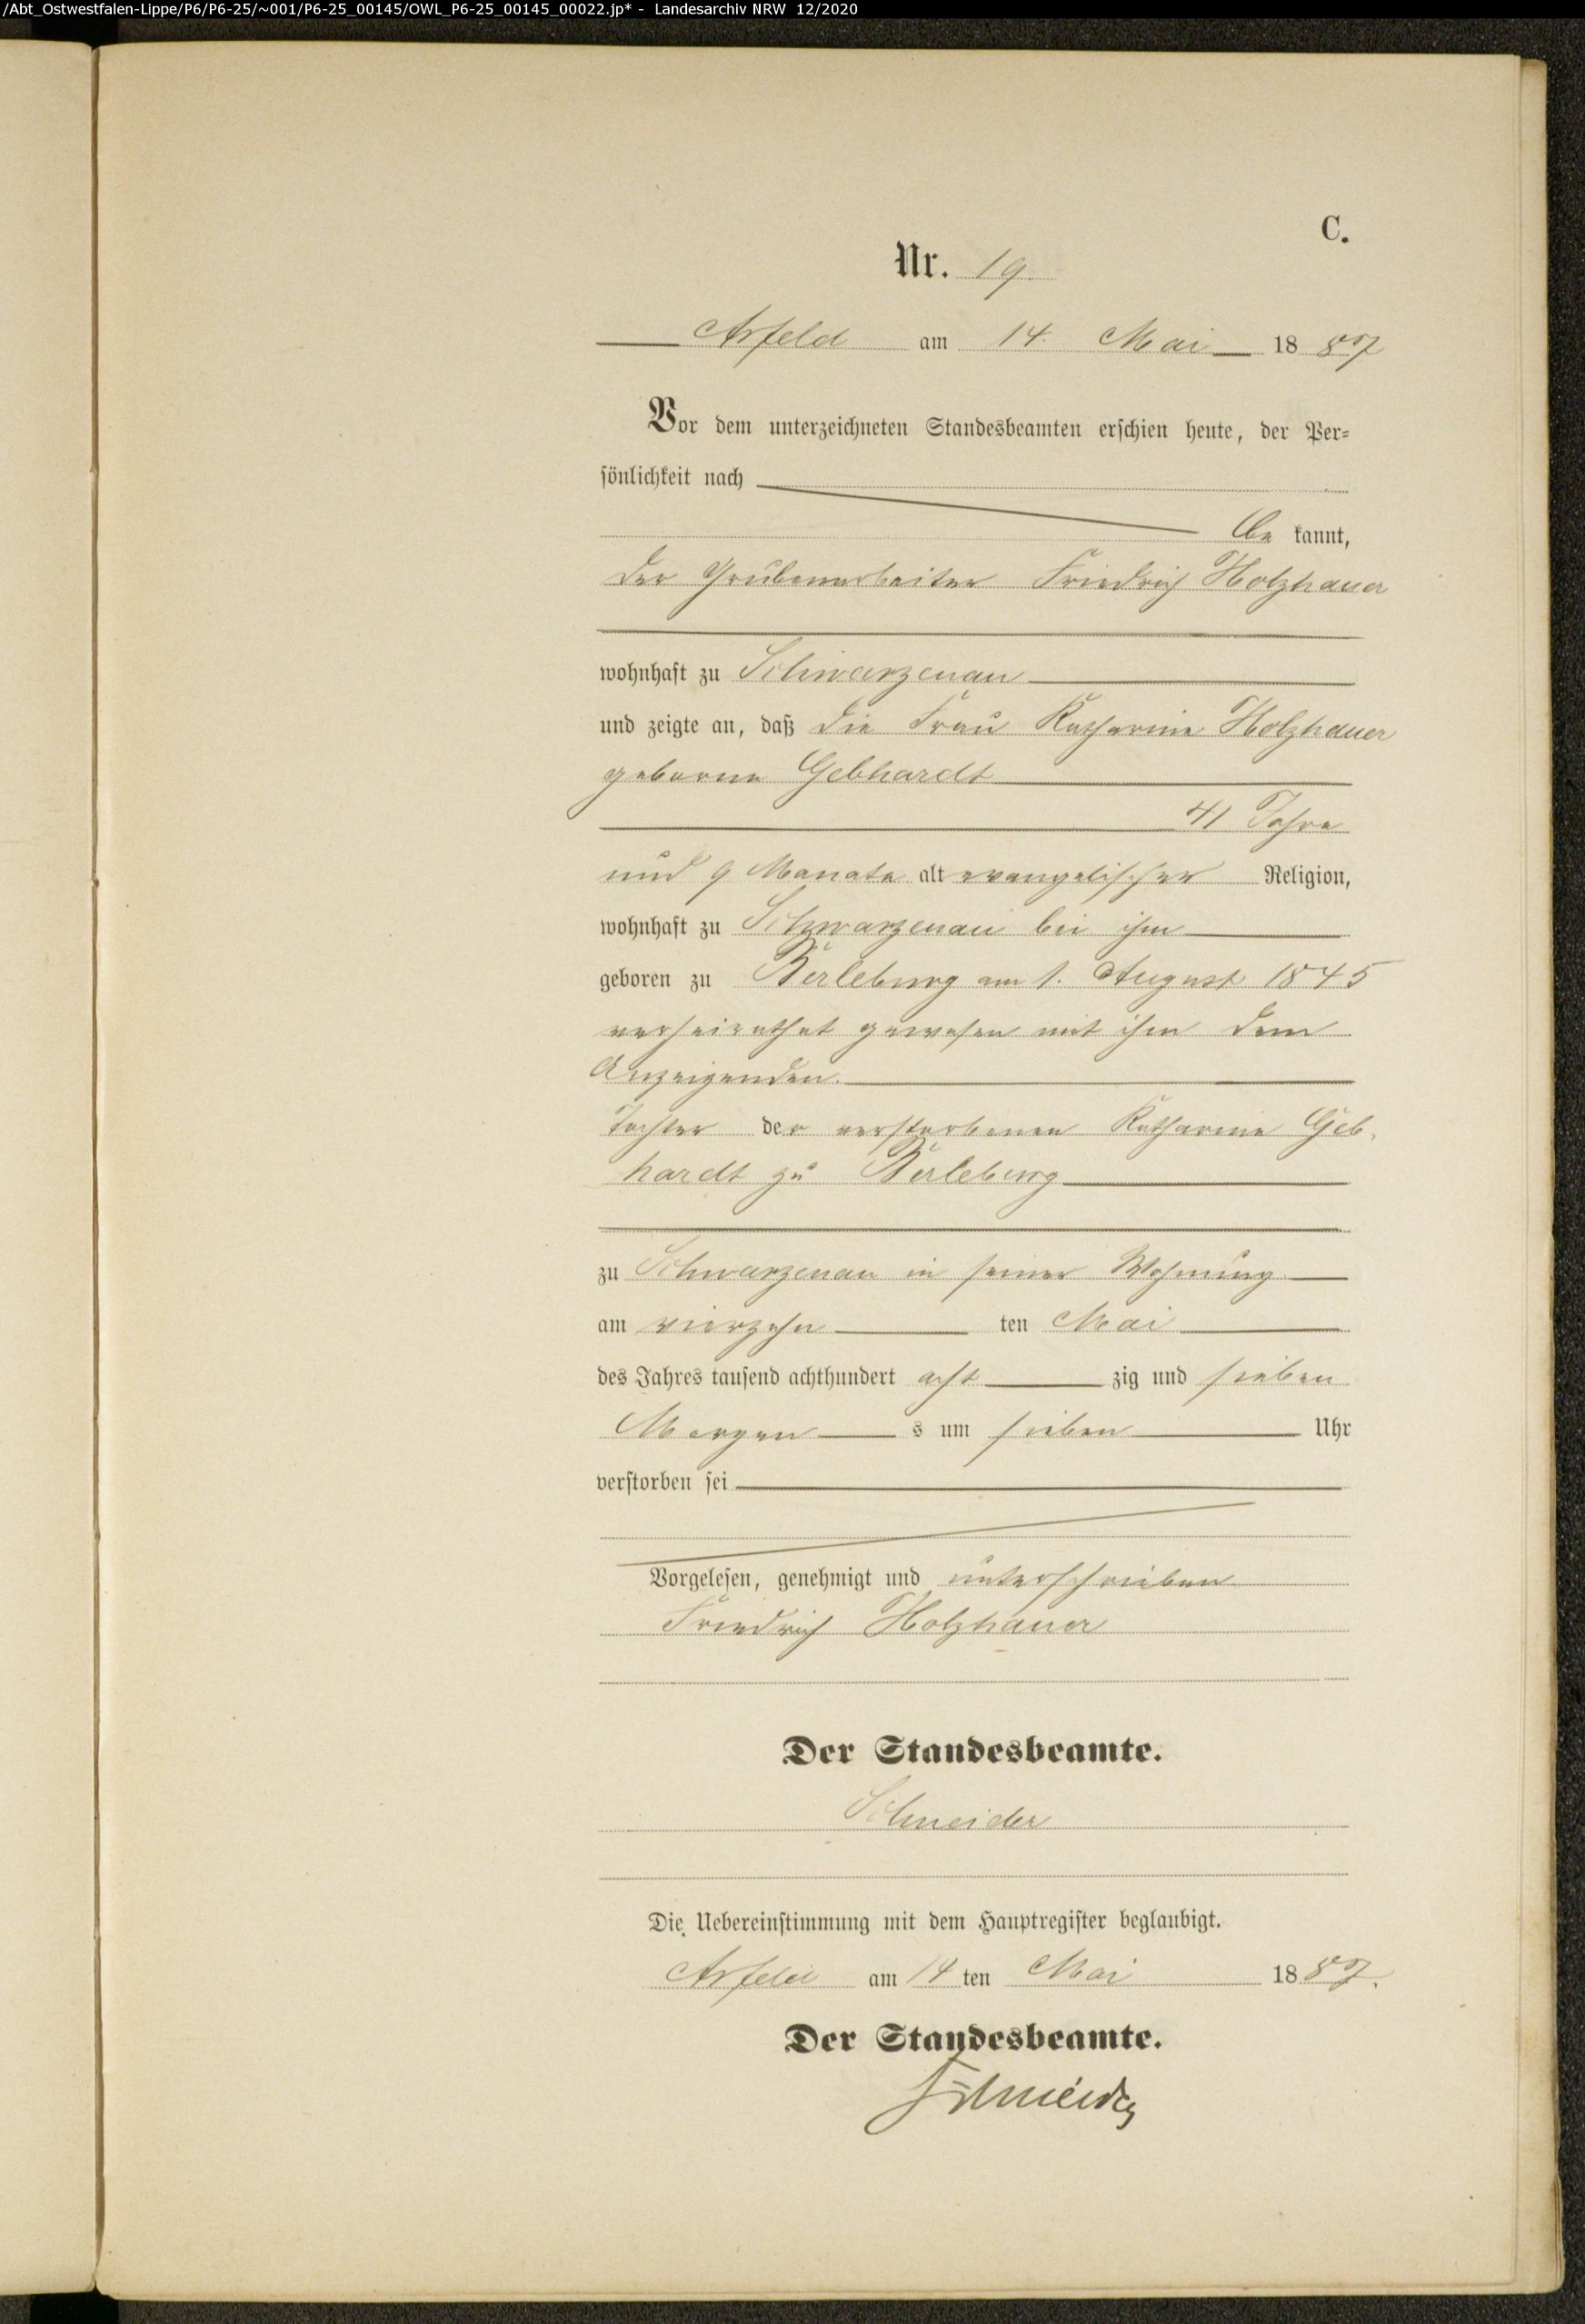 /Abt_Ostwestfalen-Lippe/P6/P6-25/~001/P6-25_00145/OWL_P6-25_00145_00022.jp* - Landesarchiv NRW 12/2020
C.
Nr. 19.
Arfeld am 14. Mai 1887
Vor dem unterzeichneten Standesbeamten erschien heute, der Per=
sönlichkeit nach
be kannt,
der Grubenarbeiter Friedrich Holzhauer
wohnhaft zu Schwarzenau
und zeigte an, daß die Frau Katharine Holzhauer
geborne Gebhardt
41 Jahre
und 9 Monate alt evangelischer Religion,
wohnhaft zu Schwarzenau bei ihm
geboren zu Berleburg am 1. August 1845
verheirathet gewesen mit ihm dem
Anzeigenden.
Tochter der verstorbenen Katharine Geb-
hardt zu Berleburg
zu Schwarzenau in seiner Wohnung
am vierzehn ten Mai
des Jahres tausend achthundert acht zig und sieben
Morgen s um sieben Uhr
verstorben sei
Vorgelesen, genehmigt und unterschrieben
Friedrich Holzhauer
Der Standesbeamte.
Schneider
Die Uebereinstimmung mit dem Hauptregister beglaubigt.
Arfeld am 14 ten Mai 1887.
Der Standesbeamte.
Schneider